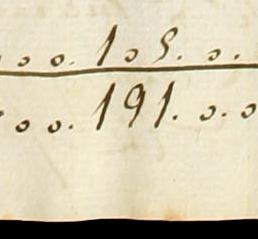 o o. 1 o 8. o.
o o. 191. o. o